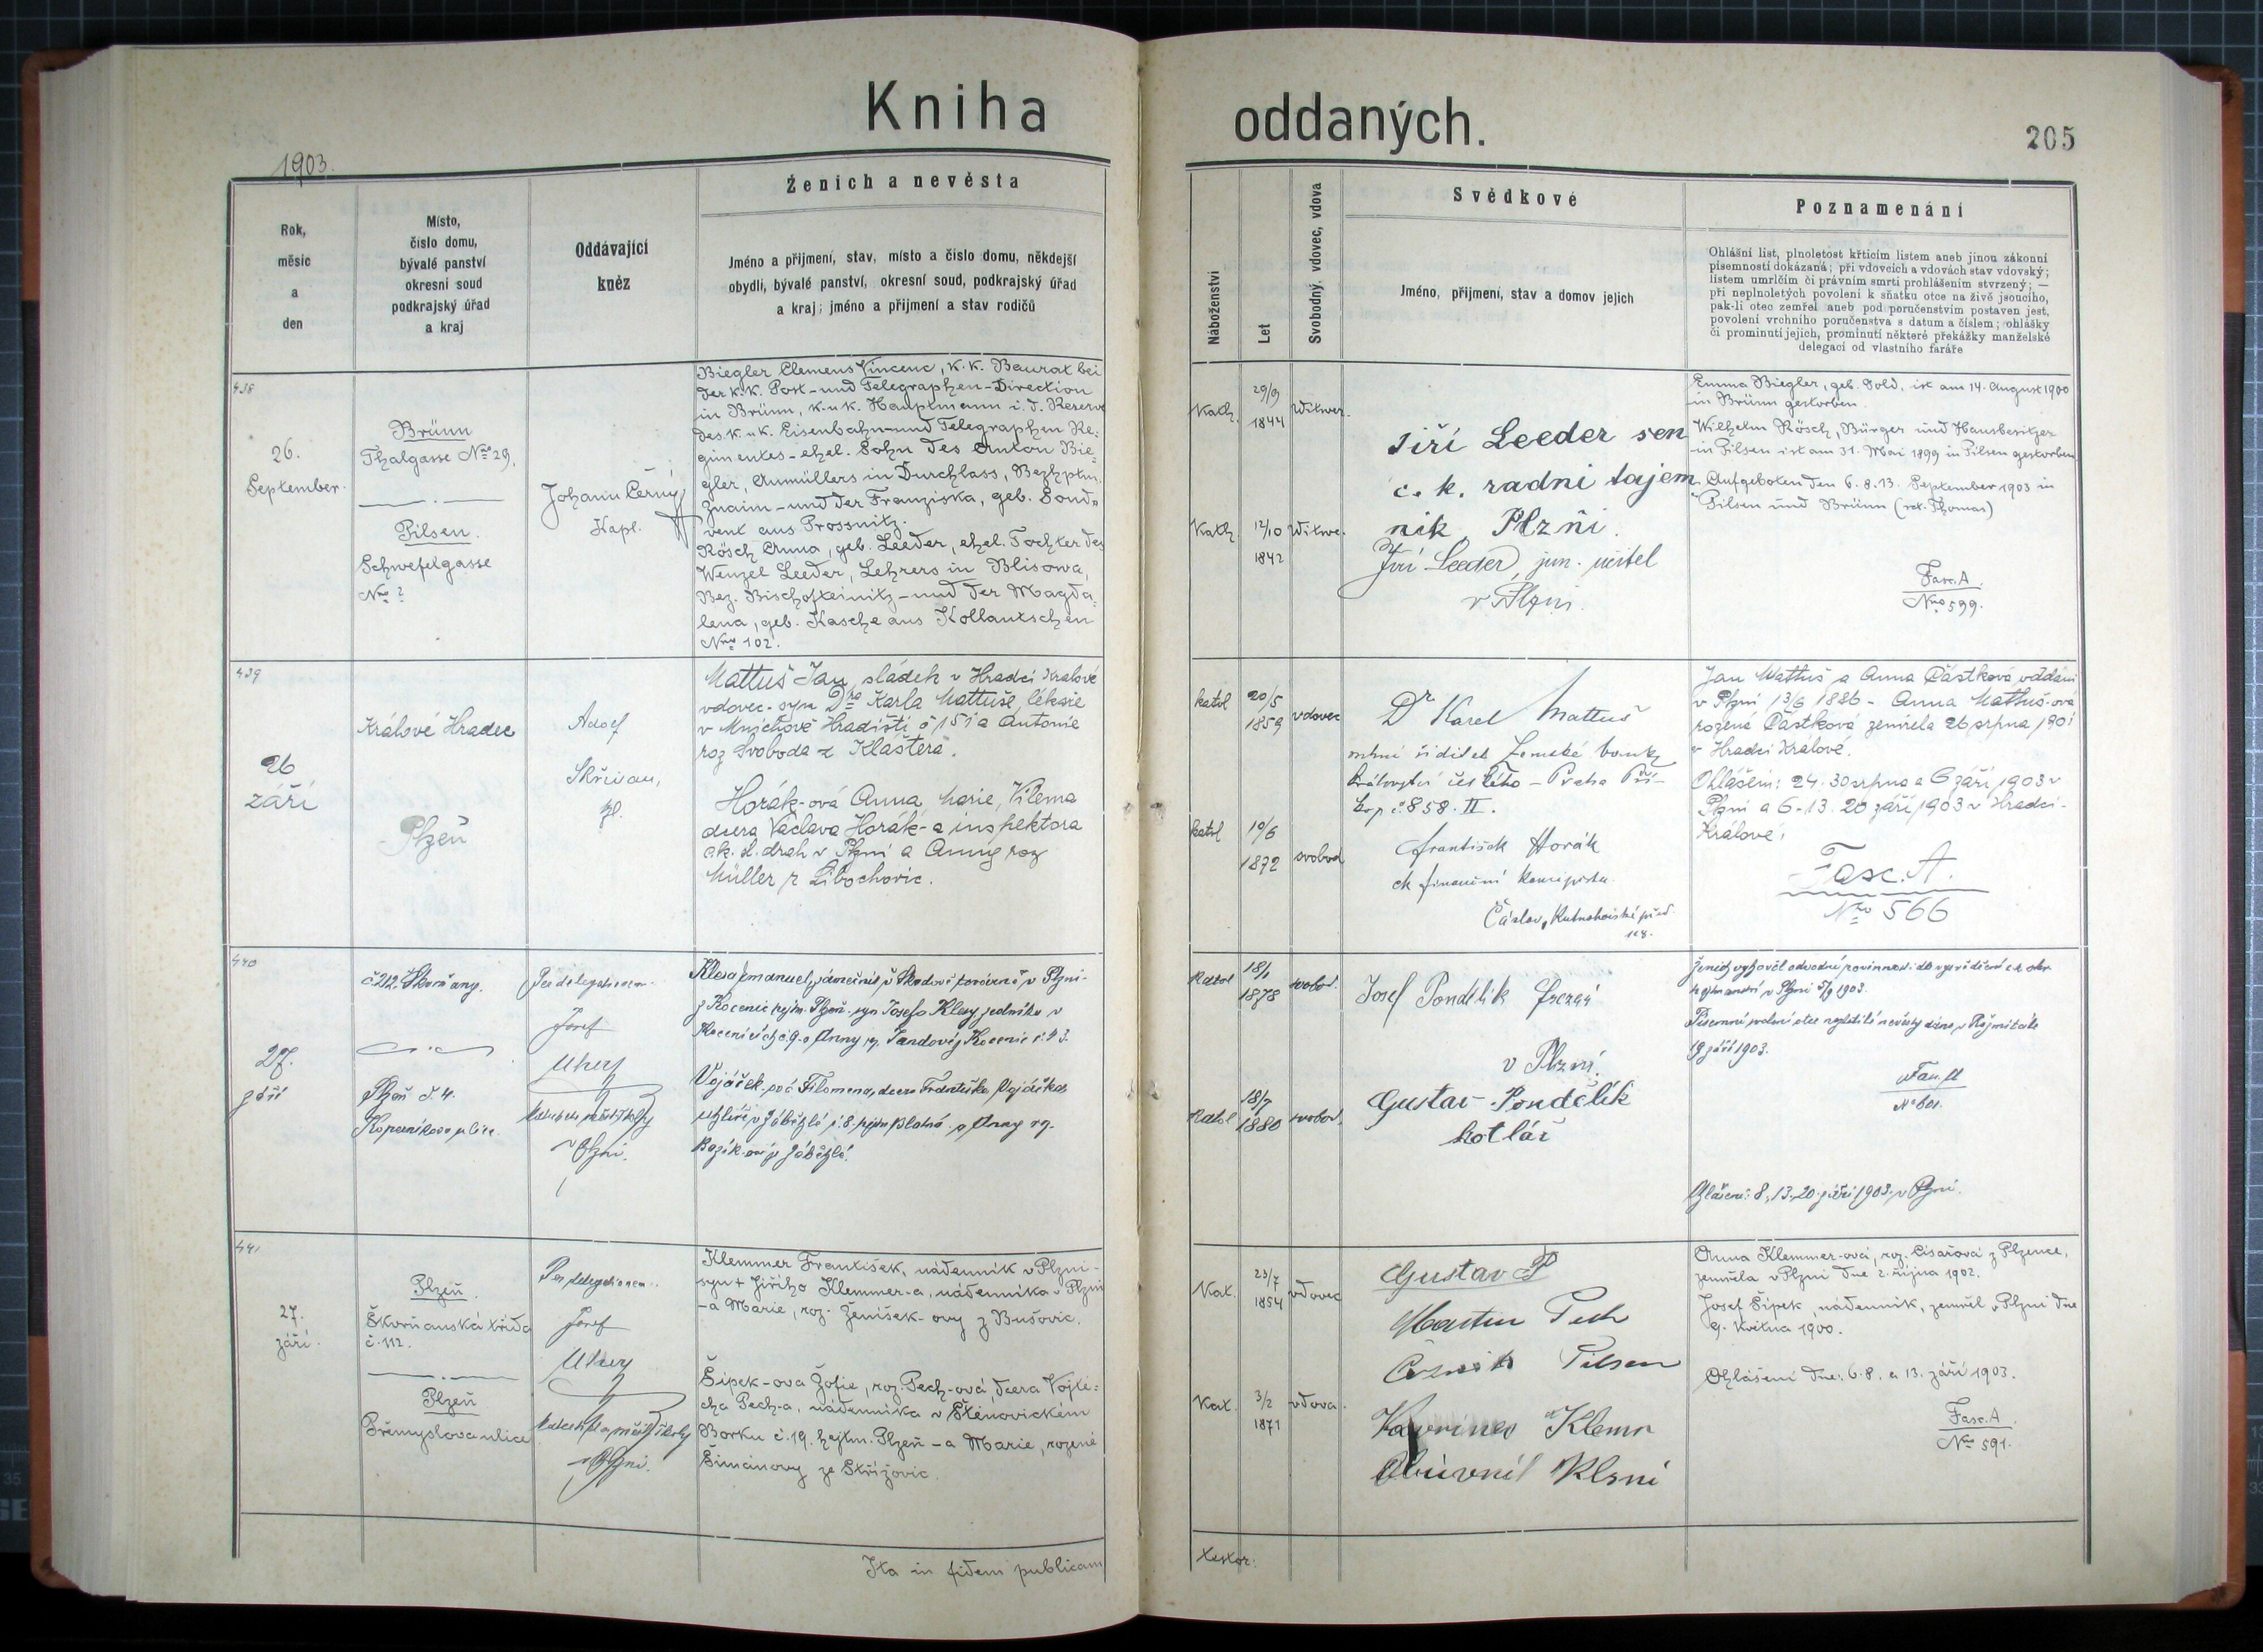 Kniha
oddaných.
205
1903.
Rok,
měsíc
a
den
Místo,
číslo domu,
bývalé panství
okresní soud
podkrajský úřad
a kraj
Oddávající
kněz
Ženich a nevěsta
Jméno a přijmení, stav, místo a číslo domu, někdejší
obydlí, bývalé panství, okresní soud, podkrajský úřad
a kraj; jméno a přijmení a stav rodičů
Náboženství
Let
Svobodný, vdovec, vdova
Svědkové
Jméno, přijmení, stav a domov jejich
Poznamenání
Ohlášní list, plnoletost křticím listem aneb jinou zákonní
písemností dokázaná; při vdovcích a vdovách stav vdovský;
listem umrlčím či právním smrti prohlášením stvrzený; —
při neplnoletých povolení k sňatku otce na živě jsoucího,
pak-li otec zemřel aneb pod poručenstvím postaven jest,
povolení vrchního poručenstva s datum a číslem; ohlášky
či prominutí jejich, prominutí některé překážky manželské
delegaci od vlastního faráře
438
26.
September.
Brünn
Thalgasse Nro 29.
Pilsen.
Schwefelgasse
Nro 2
Johann Černý
Kapl.
Biegler Clemens Vincenc, k.k. Baurat bei
der k.k. Post- und Telegraphen-Direction
in Brünn, k.u.k. Hauptmann i. d. Reserve
des k.u.k. Eisenbahn- und Telegraphen Re-
gimentes - ehel. Sohn des Anton Bie-
gler, Anmüllers in Durchlass, Bezhptm.
Znaim - und der Franziska, geb. Sond-
vent aus Prossnitz.
Rösch Anna, geb. Leeder, ehel. Tochter des
Wenzel Leeder, Lehrers in Blisowa,
Bez. Bischofteinitz - und der Magda-
lena, geb. Kasche aus Kollautschen
Nro 102.
Kath.
29/9
1844
Witwer.
Kath
12/10
1842
Witwe.
Jiří Leeder sen
c. k. radní tajem
ník Plzni
Jiří Leeder, jun. učitel
v Plzni.
Emma Biegler, geb. Sold, ist am 14. August 1900
in Brünn gestorben.
Wilhelm Rösch, Bürger und Hausbesitzer
in Pilsen ist am 31. Mai 1899 in Pilsen gestorben
Aufgeboten den 6. 8. 13. September 1903 in
Pilsen und Brünn (rct. Thomas)
Fasc. A.
Nro 599.
439
26
září
Králové Hradec
Plzeň
Adolf
Skřivan,
Mattuš Jan, sládek v Hradci Králové
vdovec - syn Dra Karla Mattuše, lékaře
v Mnichově Hradišti č 151 a Antonie
roz Svoboda z Kláštera.
Horák-ová Anna, Marie, Vilema
dcera Václava Horák-a inspektora
c.k. st. drah v Plzni a Anny roz
Müller z Libochovic.
katol
20/5
1859
vdovec
katol
10/6
1872
svobod
Dr Karel Mattuš
vrchní ředitel Zemské banky
království českého - Praha Pří-
kop č. 858. II.
František Horák
ck finanční koncipista
Čáslav, Kutnohorské před.
Jan Mattuš a Anna Částková oddáni
v Plzni 13/6 1886 - Anna Mattuš-ová
rozená Částková zemřela 26 srpna 1901
v Hradci Králové.
Ohlášeni: 24. 30 srpna a 6 září 1903 v
Plzni a 6. 13. 20 září 1903 v Hradci-
Králové.
Fasc. A.
Nro 566
440
27.
září
č. 212. Skvrňany.
Plzeň č. 4.
Koperníkova ulice.
Per delegationem
Josef
Uherý
v Plzni.
Klesa Emanuel, zámečník v Škodově továrně v Plzni
z Kocenic hejtm. Plzeň - syn Josefa Klesy podníka v
Kocenicích č. 9. a Anny roz. Jandovéj Kocenic č. 43.
Vojáček-ová Filomena, dcera Františka Vojáčka
Katol
18/1
1878
svobod.
Katol
18/7
1880
svobod.
Josef Pondělik
v Plzni.
Gustav Pondělík
kotlář
Ženich vyhověl odvodní povinnosti
v Plzni 5/9 1903.
19 září 1903.
Fasc. A
No 601.
Ohlášeni: 8, 13, 20. září 1903. v Plzni.
441
27.
září.
Plzeň.
Skvrňanská třída
č. 112.
Plzeň
Přemyslova ulice
Per delegationem
Josef
Uherý
v Plzni.
Klemmer František, nádenník v Plzni -
syn + Jiřího Klemmer-a, nádenníka v Plzni
- a Marie, roz. Ženíšek-ovy z Bušovic.
Šípek-ová Žofie, roz. Pech-ová, dcera Vojtě-
cha Pech-a, nádenníka v Štěnovickém
Borku č. 19. hejtm. Plzeň - a Marie, rozené
Šimánovy ze Střížovic.
Kat.
23/7
1854
vdovec
Kat.
3/2
1871
vdova.
Gustav P
Martin Pech
Pilsen
Klemr
Emma Klemmer-ová, roz. Císařová z Plzence,
zemřela v Plzni dne 2. října 1902.
Josef Šípek, nádenník, zemřel v Plzni dne
9. května 1900.
Ohlášeni dne: 6. 8. a 13. září 1903.
Fasc. A.
Nro 591.
Ita in fidem publicam
testor: